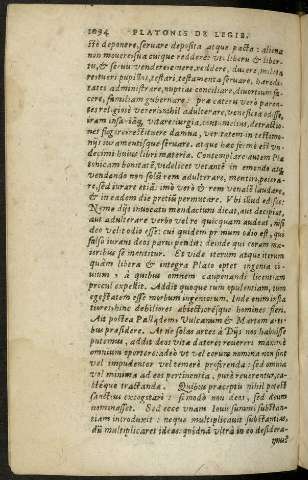 1094 PLATONIS DE LEGIB.
sitò deponere, seruare deposita atque pacta: aliena
non mouere: sua cuique reddere: vt liberu & liber
tu, & seruu vendere: emere, reddere, ducere, milita
re: tueri pupillos, testari, testamenta seruare, heredi-
tates administrare, nuptias conciliare, diuortium fa-
cere, familiam gubernare: præterea verò paren-
tes religiosè vereri: nihil adulterare, veneficia odisse,
iram insaniāq; vitare: iurgia, contumelias, detractio-
nes fugire: restituere damna, veritatem in testimo-
nijs iuramentisque seruare. atque hæc ferme est vn-
decimi huius libri materia. Contemplare autem Pla-
tonicam bonitatē, vedelicet vetantē in emendo atq;
vendendo non solùm rem adulterare, mentiri, peiera-
re, sed iurare etiā: imò verò & rem venalē laudare,
& in eadem die pretiū permutare. Vbi illud edisse:
Nemo dijs inuocatis mendacium dicat, aut decipiat,
aut adulteret verbo vel re quicquam audeat, nisi
deo velit odio esse: cui quidem primum odio est, qui
falsò iurans deos parui pendit: deinde qui coram ma-
ioribus se mentitur. Et vide iterum atque iterum
quàm libera & integra Plato optet ingenia ci-
uium, à quibus omnem cauponandi licentiam
procul expellit. Addit quoque tum opulentiam, tum
egestatem esse morbum ingeniorum. Inde enim insla
tiores: hinc debiliores abiectioresque homines fieri.
Ait postea Palladem, Vulcanum & Martem arti-
bus præsidere. At ne solas artes à Dijs nos habuisse
putemus, addit deos vitæ datores reuereri maximè
omnium oportere: adeò vt vel eorum nomina non sint
vel impudenter vel temerè proferenda: sed omnia
vel minima ad eos pertinentia, purè reuerentur, ca-
stéque tractanda. Quibus præceptis nihil potest
sanctius excogitari: si modò non deos, sed deum
nominasset. Sed ecce vnam Iouis summi substan-
tiam introduxit: neque multiplicauit substantias,
dū multiplicaret ideas. quidnā vltrà in eo desidera-
mus?